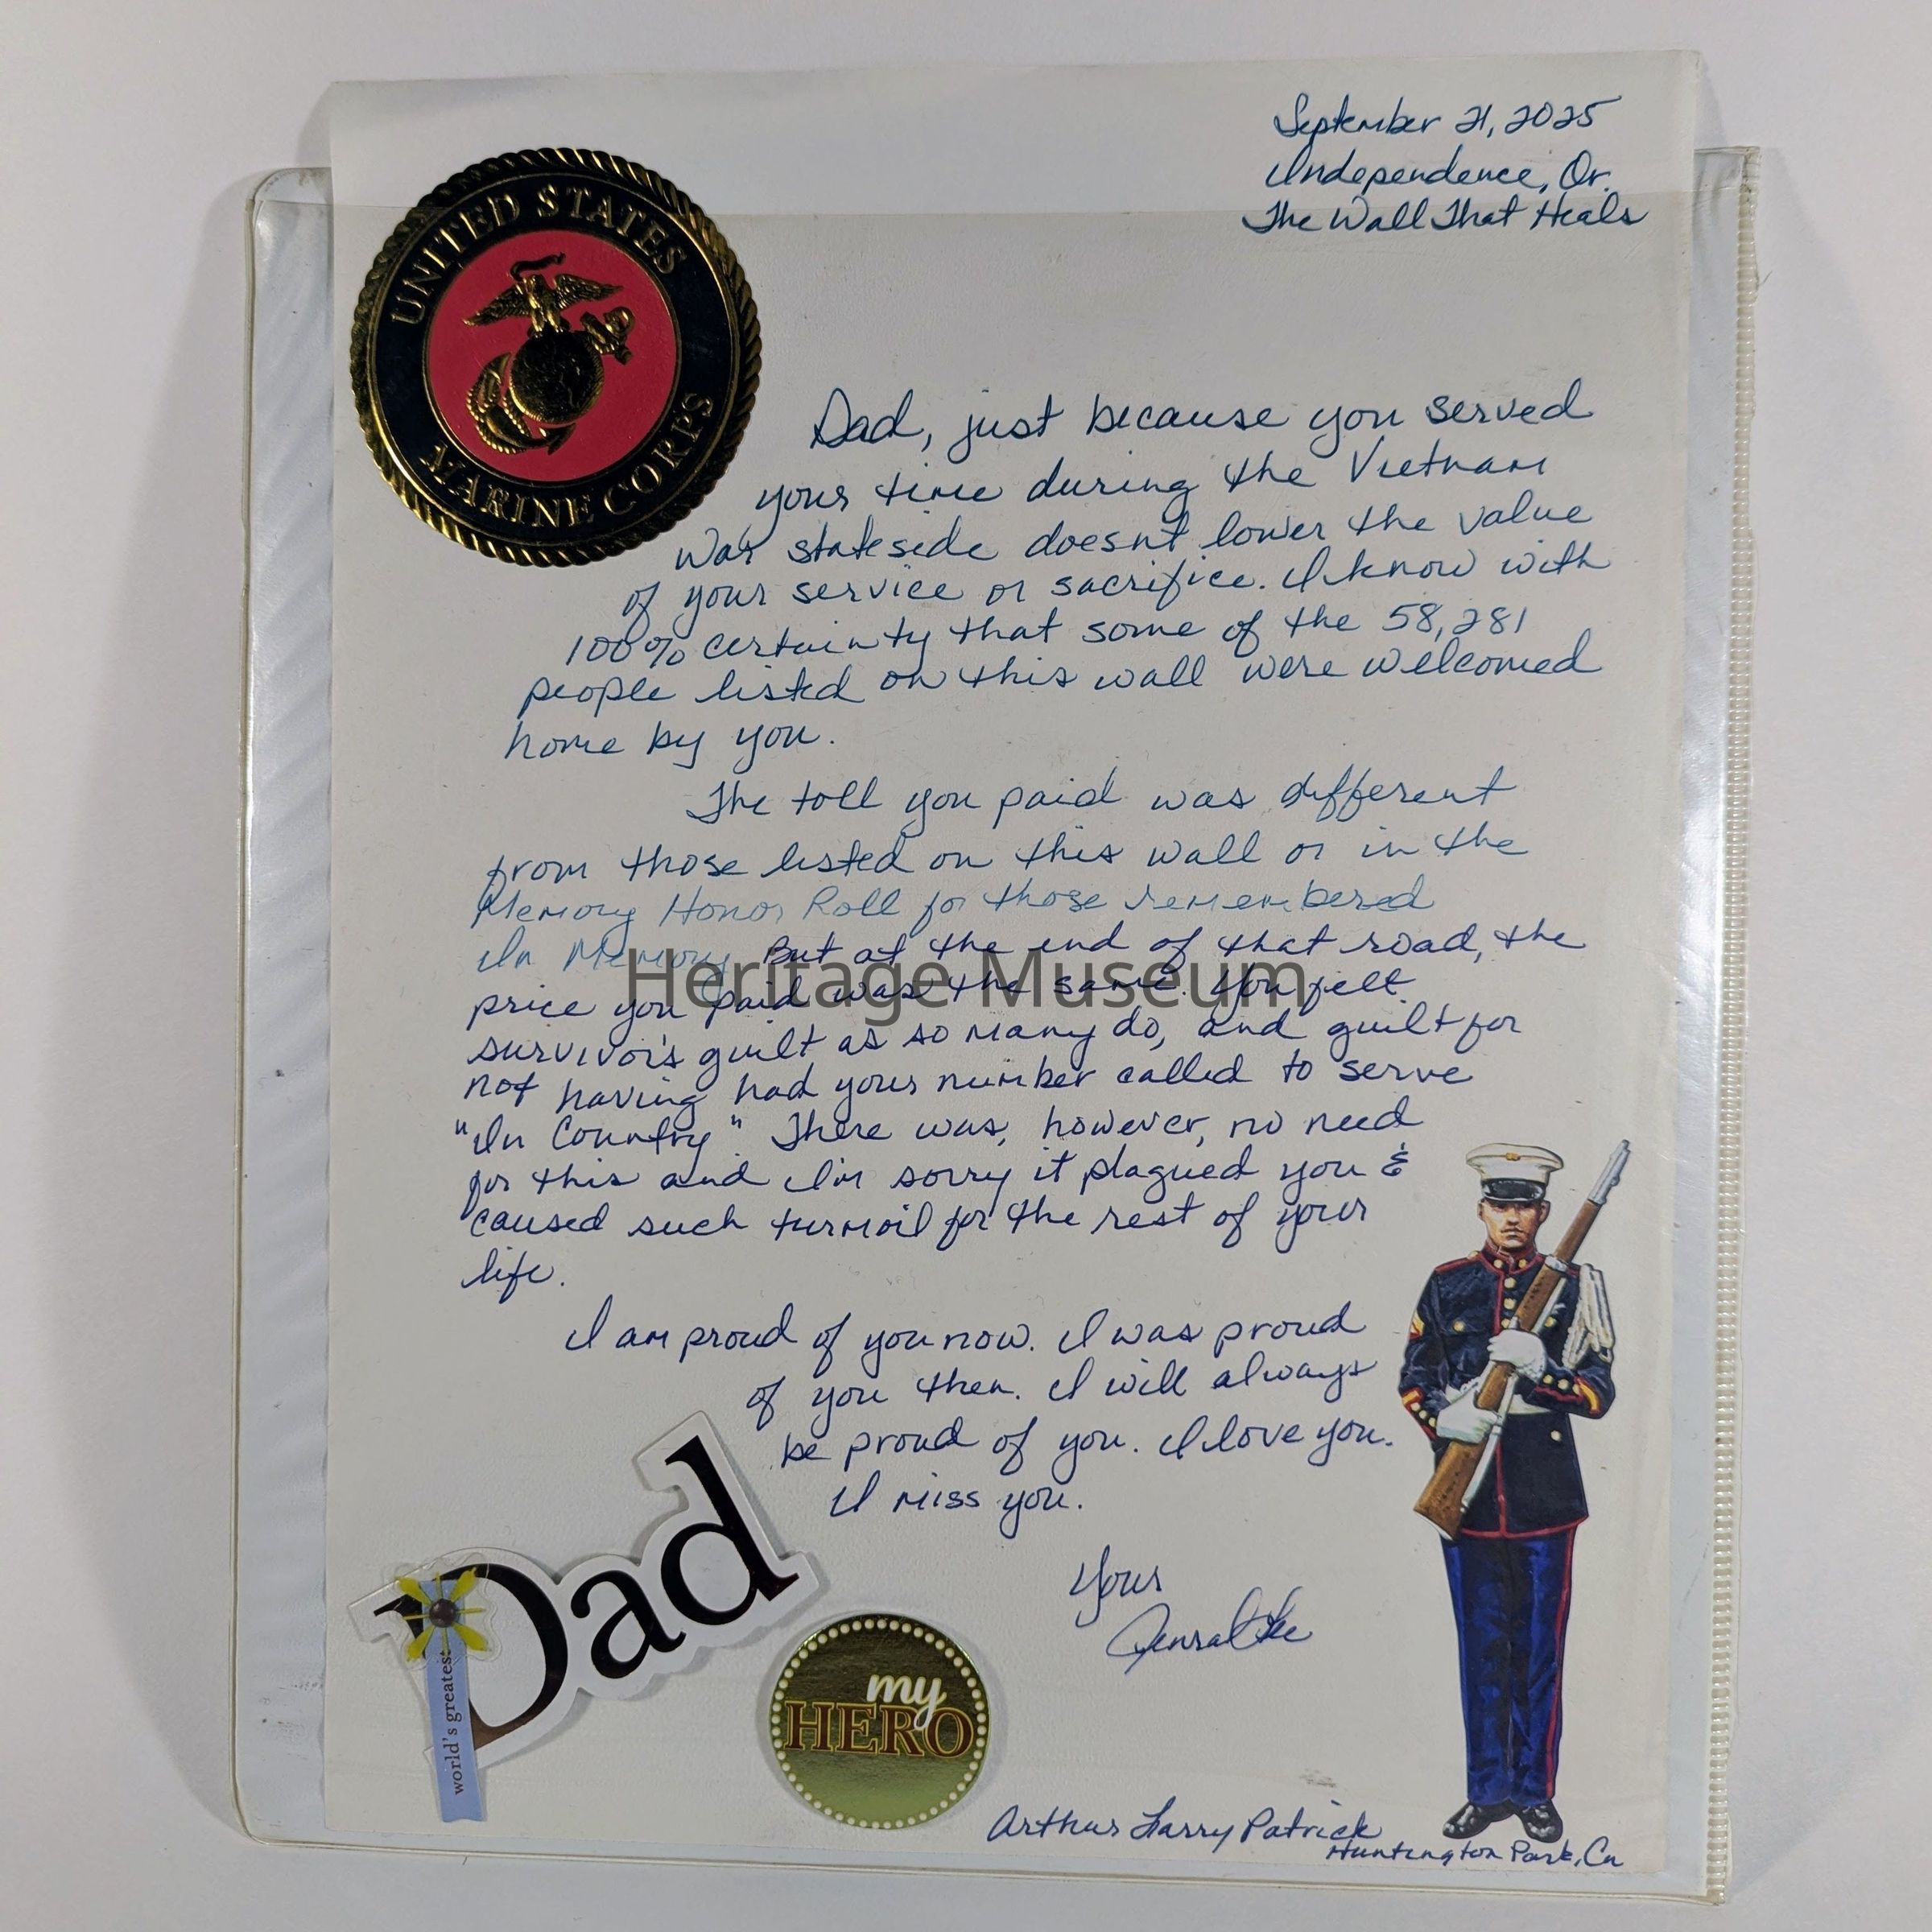 September 21, 2025
Independence, Or.
The Wall That Heals
UNITED STATES
MARINE CORPS
Dad, just because you served
your time during the Vietnam
War stateside doesn't lower the value
of your service or sacrifice. I know with
100% certainty that some of the 58,281
people listed on this wall were welcomed
home by you.
The toll you paid was different
from those listed on this wall or in the
Memory Honor Roll for those remembered
In Memory. But at the end of that road, the
price you paid was the same. You felt
survivor's guilt as so many do, and guilt for
not having had your number called to serve
"In Country" There was, however, no need
for this and I'm sorry it plagued you &
caused such turmoil for the rest of your
life.
I am proud of you now. I was proud
of you then. I will always
be proud of you. I love you.
I miss you.
Yours
Dad
world's greatest
my
HERO
Arthur Larry Patrick
Huntington Park, Ca
Heritage Museum